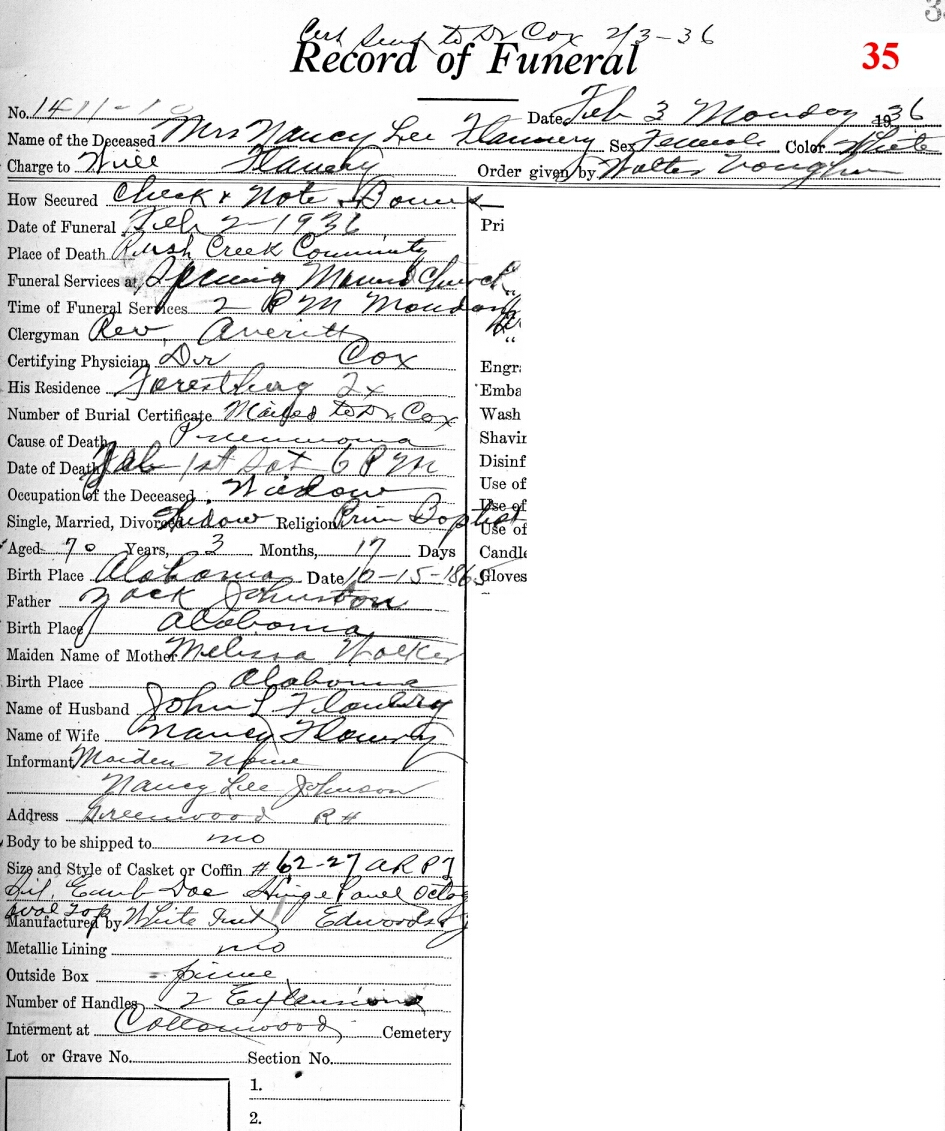 3
Cert Sent to Dr Cox 2/3-36
Record of Funeral
35
No. 1411-10
Date Feb 3 Monday 1936
Name of the Deceased Mrs Nancy Lee Flannery Sex Female Color White
Charge to Will Flannery Order given by Walter Vaughn
How Secured Check & Note
Date of Funeral Feb 2-1936
Place of Death Rush Creek Community
Funeral Services at Spring Mound Church
Time of Funeral Services 2 PM Monday
Clergyman Rev. Averitt
Certifying Physician Dr Cox
His Residence Forestburg Tx
Number of Burial Certificate Mailed to Dr Cox
Cause of Death Pneumonia
Date of Death Feb 1st Sat 6 PM
Occupation of the Deceased Widow
Single, Married, Divorced Widow Religion Prim Baptist
Aged 70 Years, 3 Months, 17 Days
Birth Place Alabama Date 10-15-1865
Father Zack Johnston
Birth Place Alabama
Maiden Name of Mother Melissa Walker
Birth Place Alabama
Name of Husband John L Flannery
Name of Wife Nancy Flannery
Informant Maiden Name
Nancy Lee Johnson
Address Greenwood R#
Body to be shipped to no
Size and Style of Casket or Coffin # 62-27
Sil. Emb Doe Hinge Panel Octag
oval Top
Manufactured by White Edwards
Metallic Lining no
Outside Box pine
Number of Handles 2 Extensions
Interment at Cottonwood Cemetery
Lot or Grave No. Section No.
1.
2.
Pri
“
Engr
Emba
Wash
Shavin
Disinf
Use of
Use of
Use of
Candle
Gloves